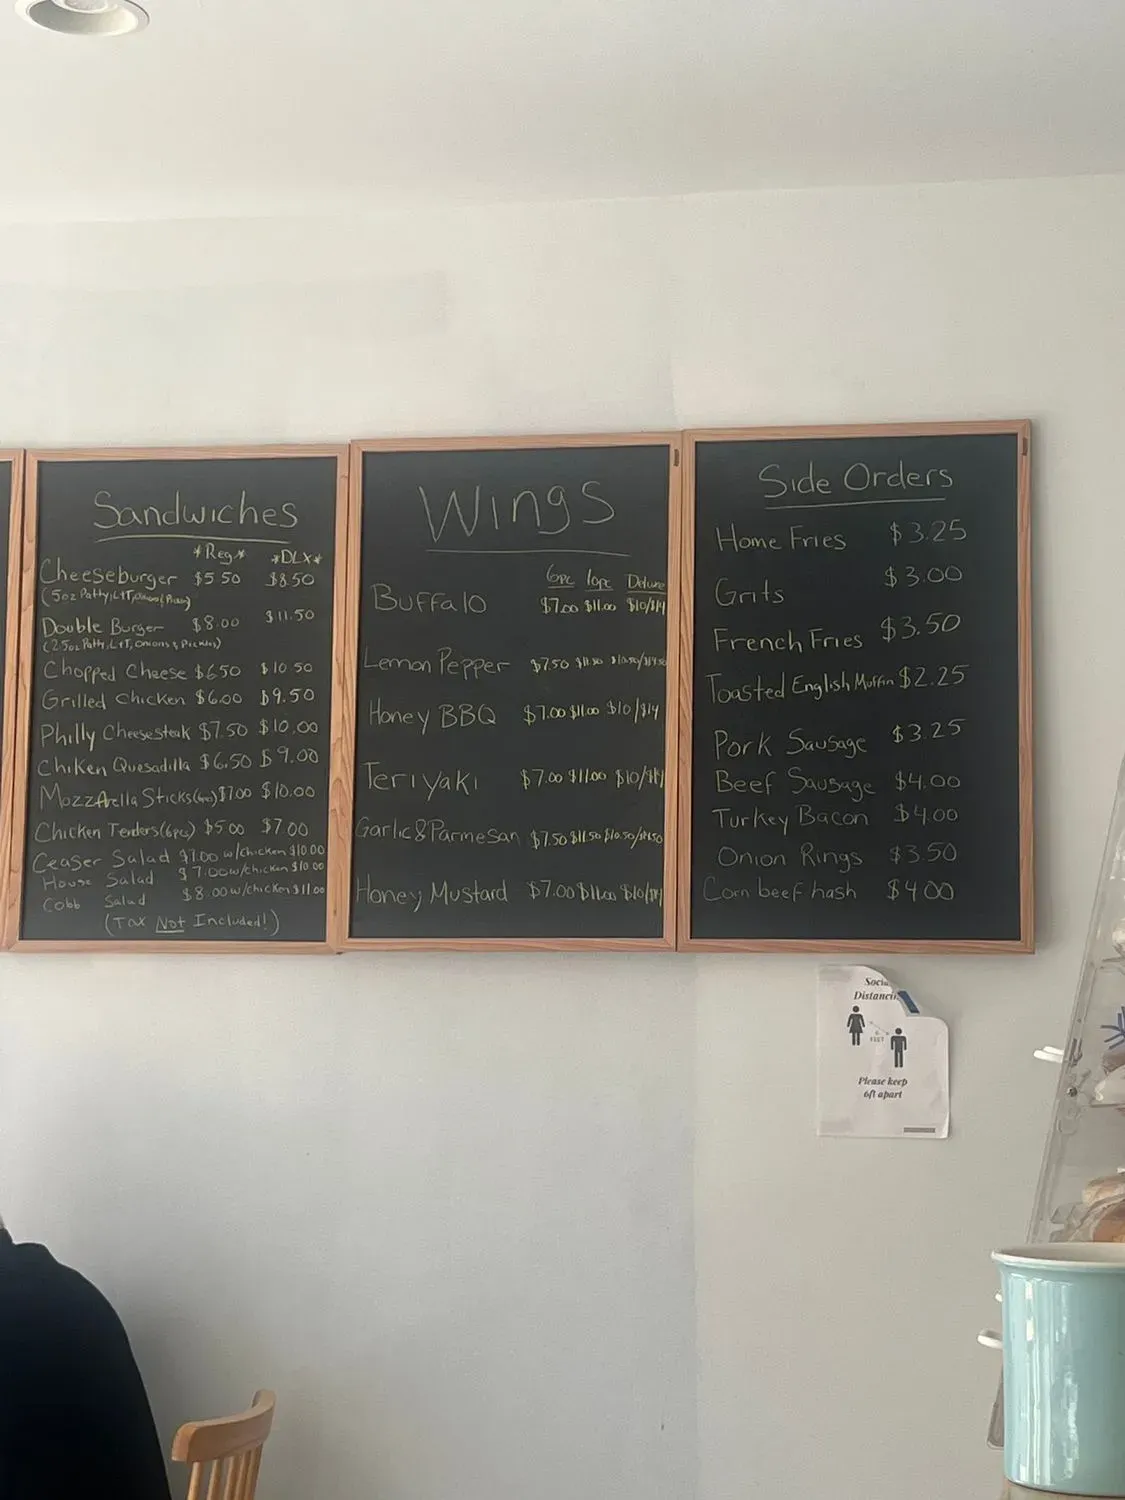 Sandwiches
*Reg* *DLX*
Cheeseburger $5.50 $8.50
(5oz Patty, L+T, Onions & Pickles)
Double Burger $8.00 $11.50
(2 5oz Patty, L+T, Onions & Pickles)
Chopped Cheese $6.50 $10.50
Grilled Chicken $6.00 $9.50
Philly Cheesesteak $7.50 $10.00
Chiken Quesadilla $6.50 $9.00
Mozzarella Sticks (6pc) $7.00 $10.00
Chicken Tenders (6pcs) $5.00 $7.00
Ceaser Salad $7.00 w/chicken $10.00
House Salad $7.00 w/chicken $10.00
Cobb Salad $8.00 w/chicken $11.00
(Tax Not Included!)
Wings
6pc 10pc Deluxe
Buffalo $7.00 $11.00 $10/$14
Lemon Pepper $7.50 $11.50 $10.50/$14.50
Honey BBQ $7.00 $11.00 $10/$14
Teriyaki $7.00 $11.00 $10/$14
Garlic & Parmesan $7.50 $11.50 $10.50/$14.50
Honey Mustard $7.00 $11.00 $10/$14
Side Orders
Home Fries $3.25
Grits $3.00
French Fries $3.50
Toasted English Muffin $2.25
Pork Sausage $3.25
Beef Sausage $4.00
Turkey Bacon $4.00
Onion Rings $3.50
Corn beef hash $4.00
Distancin
6
FEET
Please keep
6ft apart